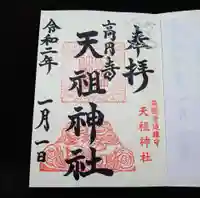 奉拝
高円寺
天祖神社
令和二年
一月一日
天祖神社